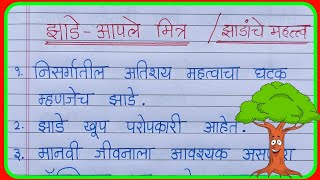 झाडे - आपले मित्र / झाडांचे महत्त्व
१. निसर्गातील अतिशय महत्वाचा घटक
म्हणजेच झाडे.
२. झाडे खूप परोपकारी आहेत.
३. मानवी जीवनाला आवश्यक